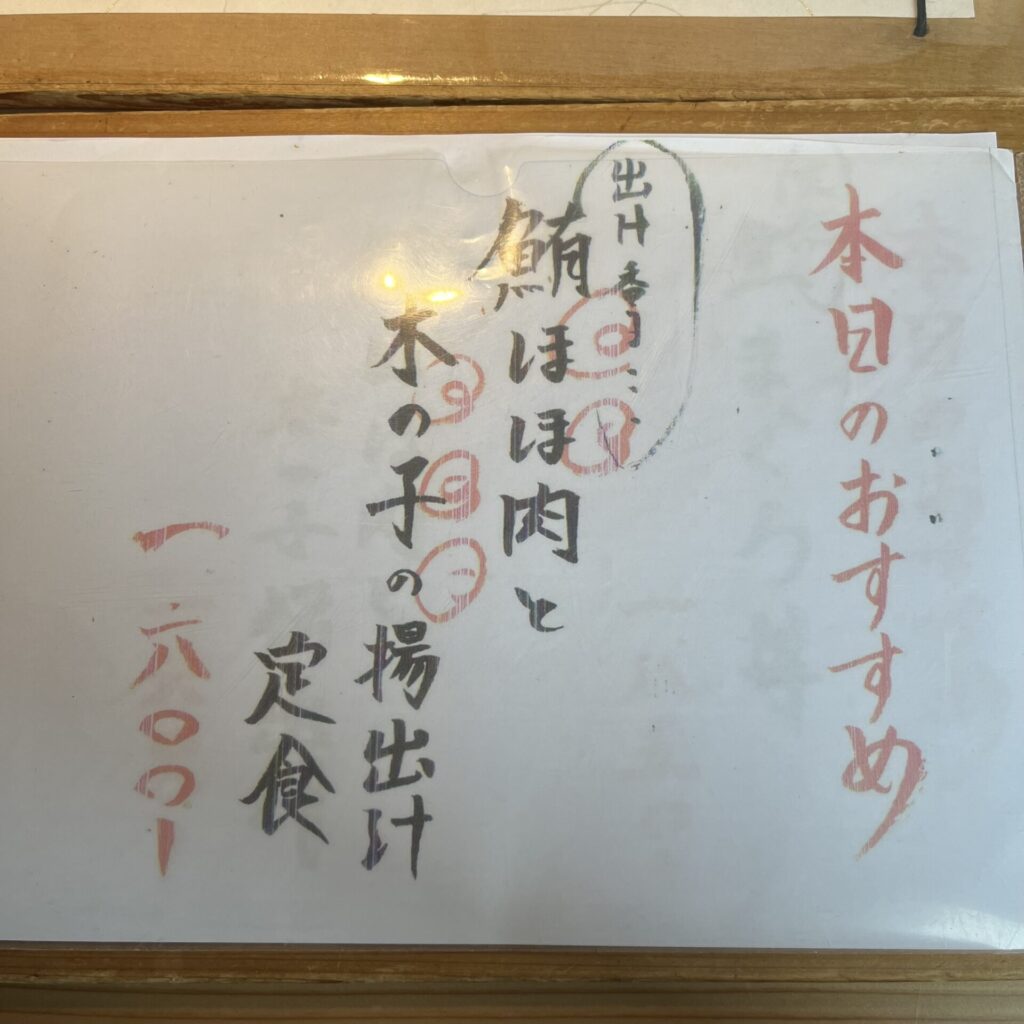 本日のおすすめ
出汁香る
鮪ほほ肉と
木の子の揚出汁
定食
一六〇〇ー